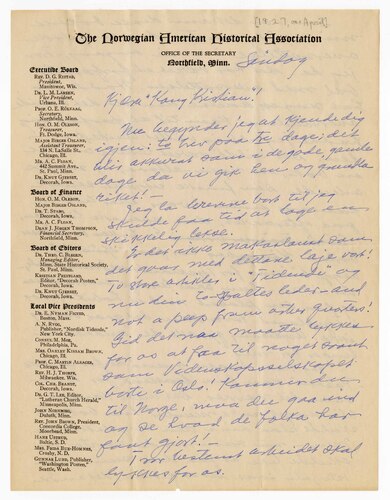 [1827, med April]
The Norwegian American Historical Association
OFFICE OF THE SECRETARY
Northfield, Minn.
Søndag
Executive Board
REV. D. G. RISTAD,
President,
Manitowoc, Wis.
DR. L. M. LARSON,
Vice President,
Urbana, Ill.
PROF. O. E. RÖLVAAG,
Secretary,
Northfield, Minn.
HON. O. M. OLESON,
Treasurer,
Ft. Dodge, Iowa.
MAJOR BIRGER OSLAND,
Assistant Treasurer,
134 N. La Salle St.,
Chicago, Ill.
MR. A. C. FLOAN,
442 Summit Ave.,
St. Paul, Minn.
DR. KNUT GJERSET,
Decorah, Iowa.
Board of Finance
HON. O. M. OLESON,
MAJOR BIRGER OSLAND,
DR. T. STABO,
Decorah, Iowa.
MR. A. C. FLOAN,
DEAN J. JÖRGEN THOMPSON,
Financial Secretary,
Northfield, Minn.
Board of Editors
DR. THEO. C. BLEGEN,
Managing Editor,
Minn. State Historical Society,
St. Paul, Minn.
KRISTIAN PRESTGARD,
Editor, "Decorah Posten,"
Decorah, Iowa.
DR. KNUT GJERSET,
Decorah, Iowa.
Local Vice Presidents
Boston, Mass.
A. N. RYGG,
Publisher, "Nordisk Tidende,"
New York City.
CONSUL M. MOE,
Philadelphia, Pa.
Chicago, Ill.
Chicago, Ill.
REV. H. J. THORPE,
Milwaukee, Wis.
COL. CHR. BRANDT,
Decorah, Ia.
DR. G. T. LEE, Editor,
"Lutheran Church Herald,"
Minneapolis, Minn.
Duluth, Minn.
REV. JOHN BROWN, President,
Concordia College,
Moorhead, Minn.
HANS USTRUD,
Baltic, S. D.
Crosby, N. D.
GUNNAR LUND, Publisher,
"Washington Posten,"
Seattle, Wash.
Kjære "Kong Kristian"!
Nu begynder jeg at kjende dig
igjen: to brev paa tre dage; det
blir akkurat som i de gode, gamle
dage da vi gik hen og grundla
riket!
Jeg la brevene bort til jeg
skulde faa tid at lage en
skikkelig lekse.
Er det ikke makaløst som
det gaar med dettane laget vort!
To store artikler i "Tidende" og
nu din to-spaltes leder – and
not a peep from other quarters!
Gid det nu maatte lykkes
for os at faa til noget sammen
som Videnskapsselskapet
borte i Oslo. Kommer du
til Norge, maa du gaa ind
og se hvad de folka har
faat gjort! –
I vor bestemt arbeidet skal
lykkes for os.